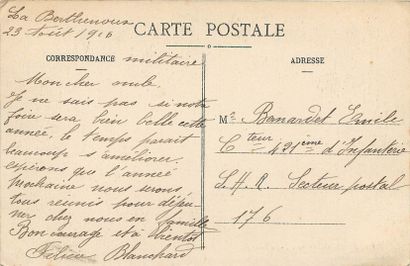 La Berthenoux
23 Août 1916
CARTE POSTALE
CORRESPONDANCE militaire
ADRESSE
Mon cher oncle,
Je ne sais pas si notre
foire sera bien belle cette
année, le temps parait
beaucoup s'améliorer.
espérons que l'année
prochaine nous serons
tous réunis pour déjeu-
ner chez nous en famille
Bon courage et à bientôt
Félicie Blanchard
Mr Bernardet Emile
Cteur 421eme d'Infanterie
S.H.R. Secteur postal
176